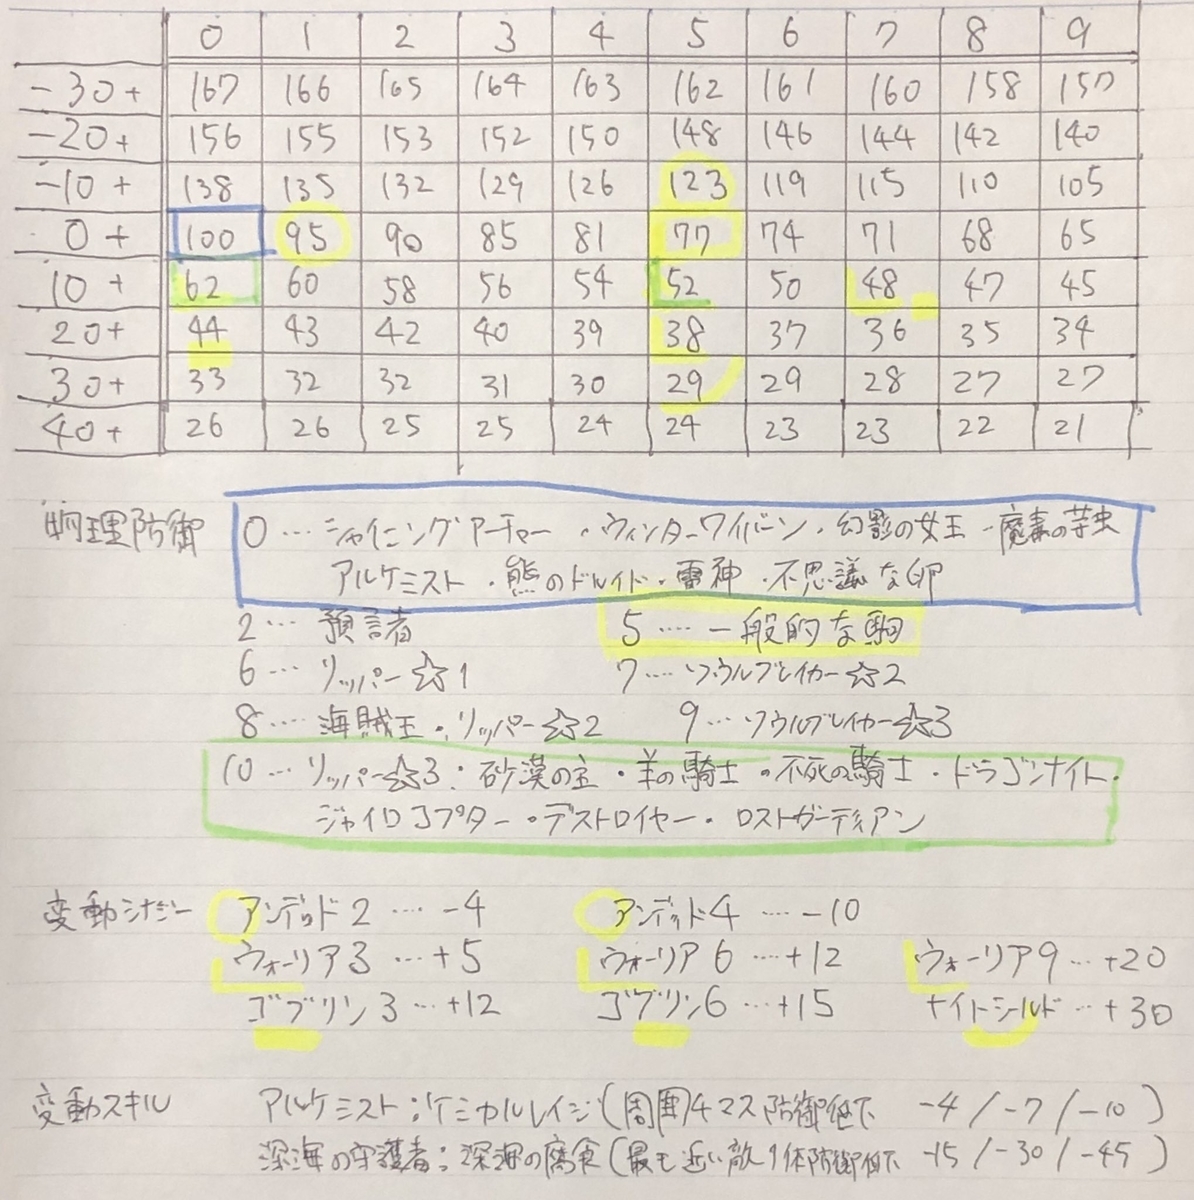 0 1 2 3 4 5 6 7 8 9
-30+ 167 166 165 164 163 162 161 160 158 157
-20+ 156 155 153 152 150 148 146 144 142 140
-10+ 138 135 132 129 126 123 119 115 110 105
0+ 100 95 90 85 81 77 74 71 68 65
10+ 62 60 58 56 54 52 50 48 47 45
20+ 44 43 42 40 39 38 37 36 35 34
30+ 33 32 32 31 30 29 29 28 27 27
40+ 26 26 25 25 24 24 23 23 22 21
物理防御 0…シャイニングアーチャー・ウィンターワイバーン・幻影の女王・魔毒の芋虫
アルケミスト・熊のドルイド・雷神・不思議な卵
2… 預言者 5…. 一般的な駒
6… リッパー☆1 7…. ソウルブレイカー☆2
8…. 海賊王・リッパー☆2 9… ソウルブレイカー☆3
10… リッパー☆3・砂漠の主・羊の騎士・不死の騎士・ドラゴンナイト・
ジャイロコプター・デストロイヤー・ロストガーディアン
変動シナジー アンデッド2 …. -4 アンデッド4 …. -10
ウォーリア3 …+5 ウォーリア6 …+12 ウォーリア9…+20
ゴブリン3…+12 ゴブリン6…+15 ナイトシールド…+30
変動スキル アルケミスト:ケミカルレイジ(周囲4マス防御低下 -4/-7/-10)
深海の守護者:深海の腐食(最も近い敵1体防御低下 -15/-30/-45)